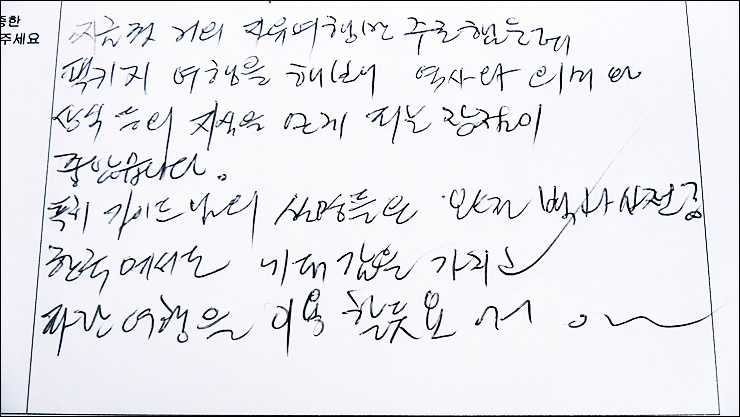 중한
주세요
지금껏 거의 자유여행만 주로 했는데
팩키지 여행을 해보니 역사와 의미와
상식 등의 지식을 얻게 되는 장점이
좋았습니다.
특히 가이드님의 설명들은 완전 백과사전급
한국에서는 기대감을 가지고
파란여행을 이용할듯요